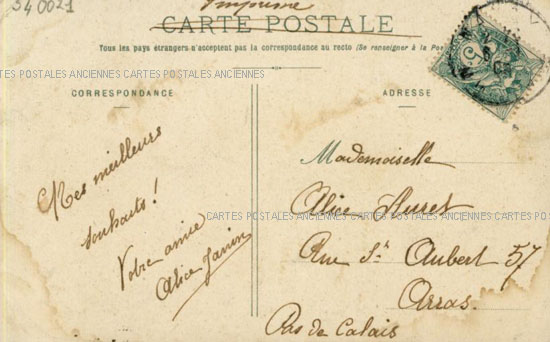 340021
Imprimé
CARTE POSTALE
Tous les pays étrangers n'acceptent pas la correspondance au recto (Se renseigner à la Pos
CARTES POSTALES ANCIENNES CARTES POSTALES ANCIENNES CARTES POSTALES ANCIENNES CARTES POSTALES ANCIENNES
CORRESPONDANCE
Mes meilleurs
souhaits !
Votre amie
Alice Janin
ADRESSE
Mademoiselle
Alice Huret
CARTES POSTALES ANCIENNES CARTES POSTALES ANCIENNES CARTES POSTALES
Rue St Aubert 57
Arras.
Pas de Calais